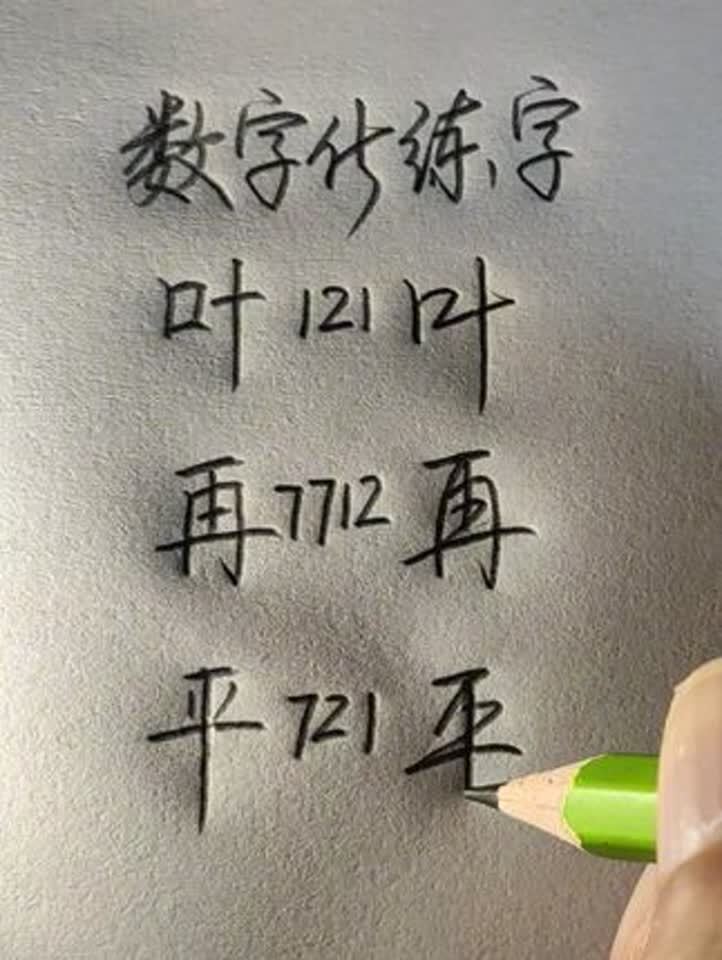 数字化练字
叶 121 叶
再 7712 再
平 721 平